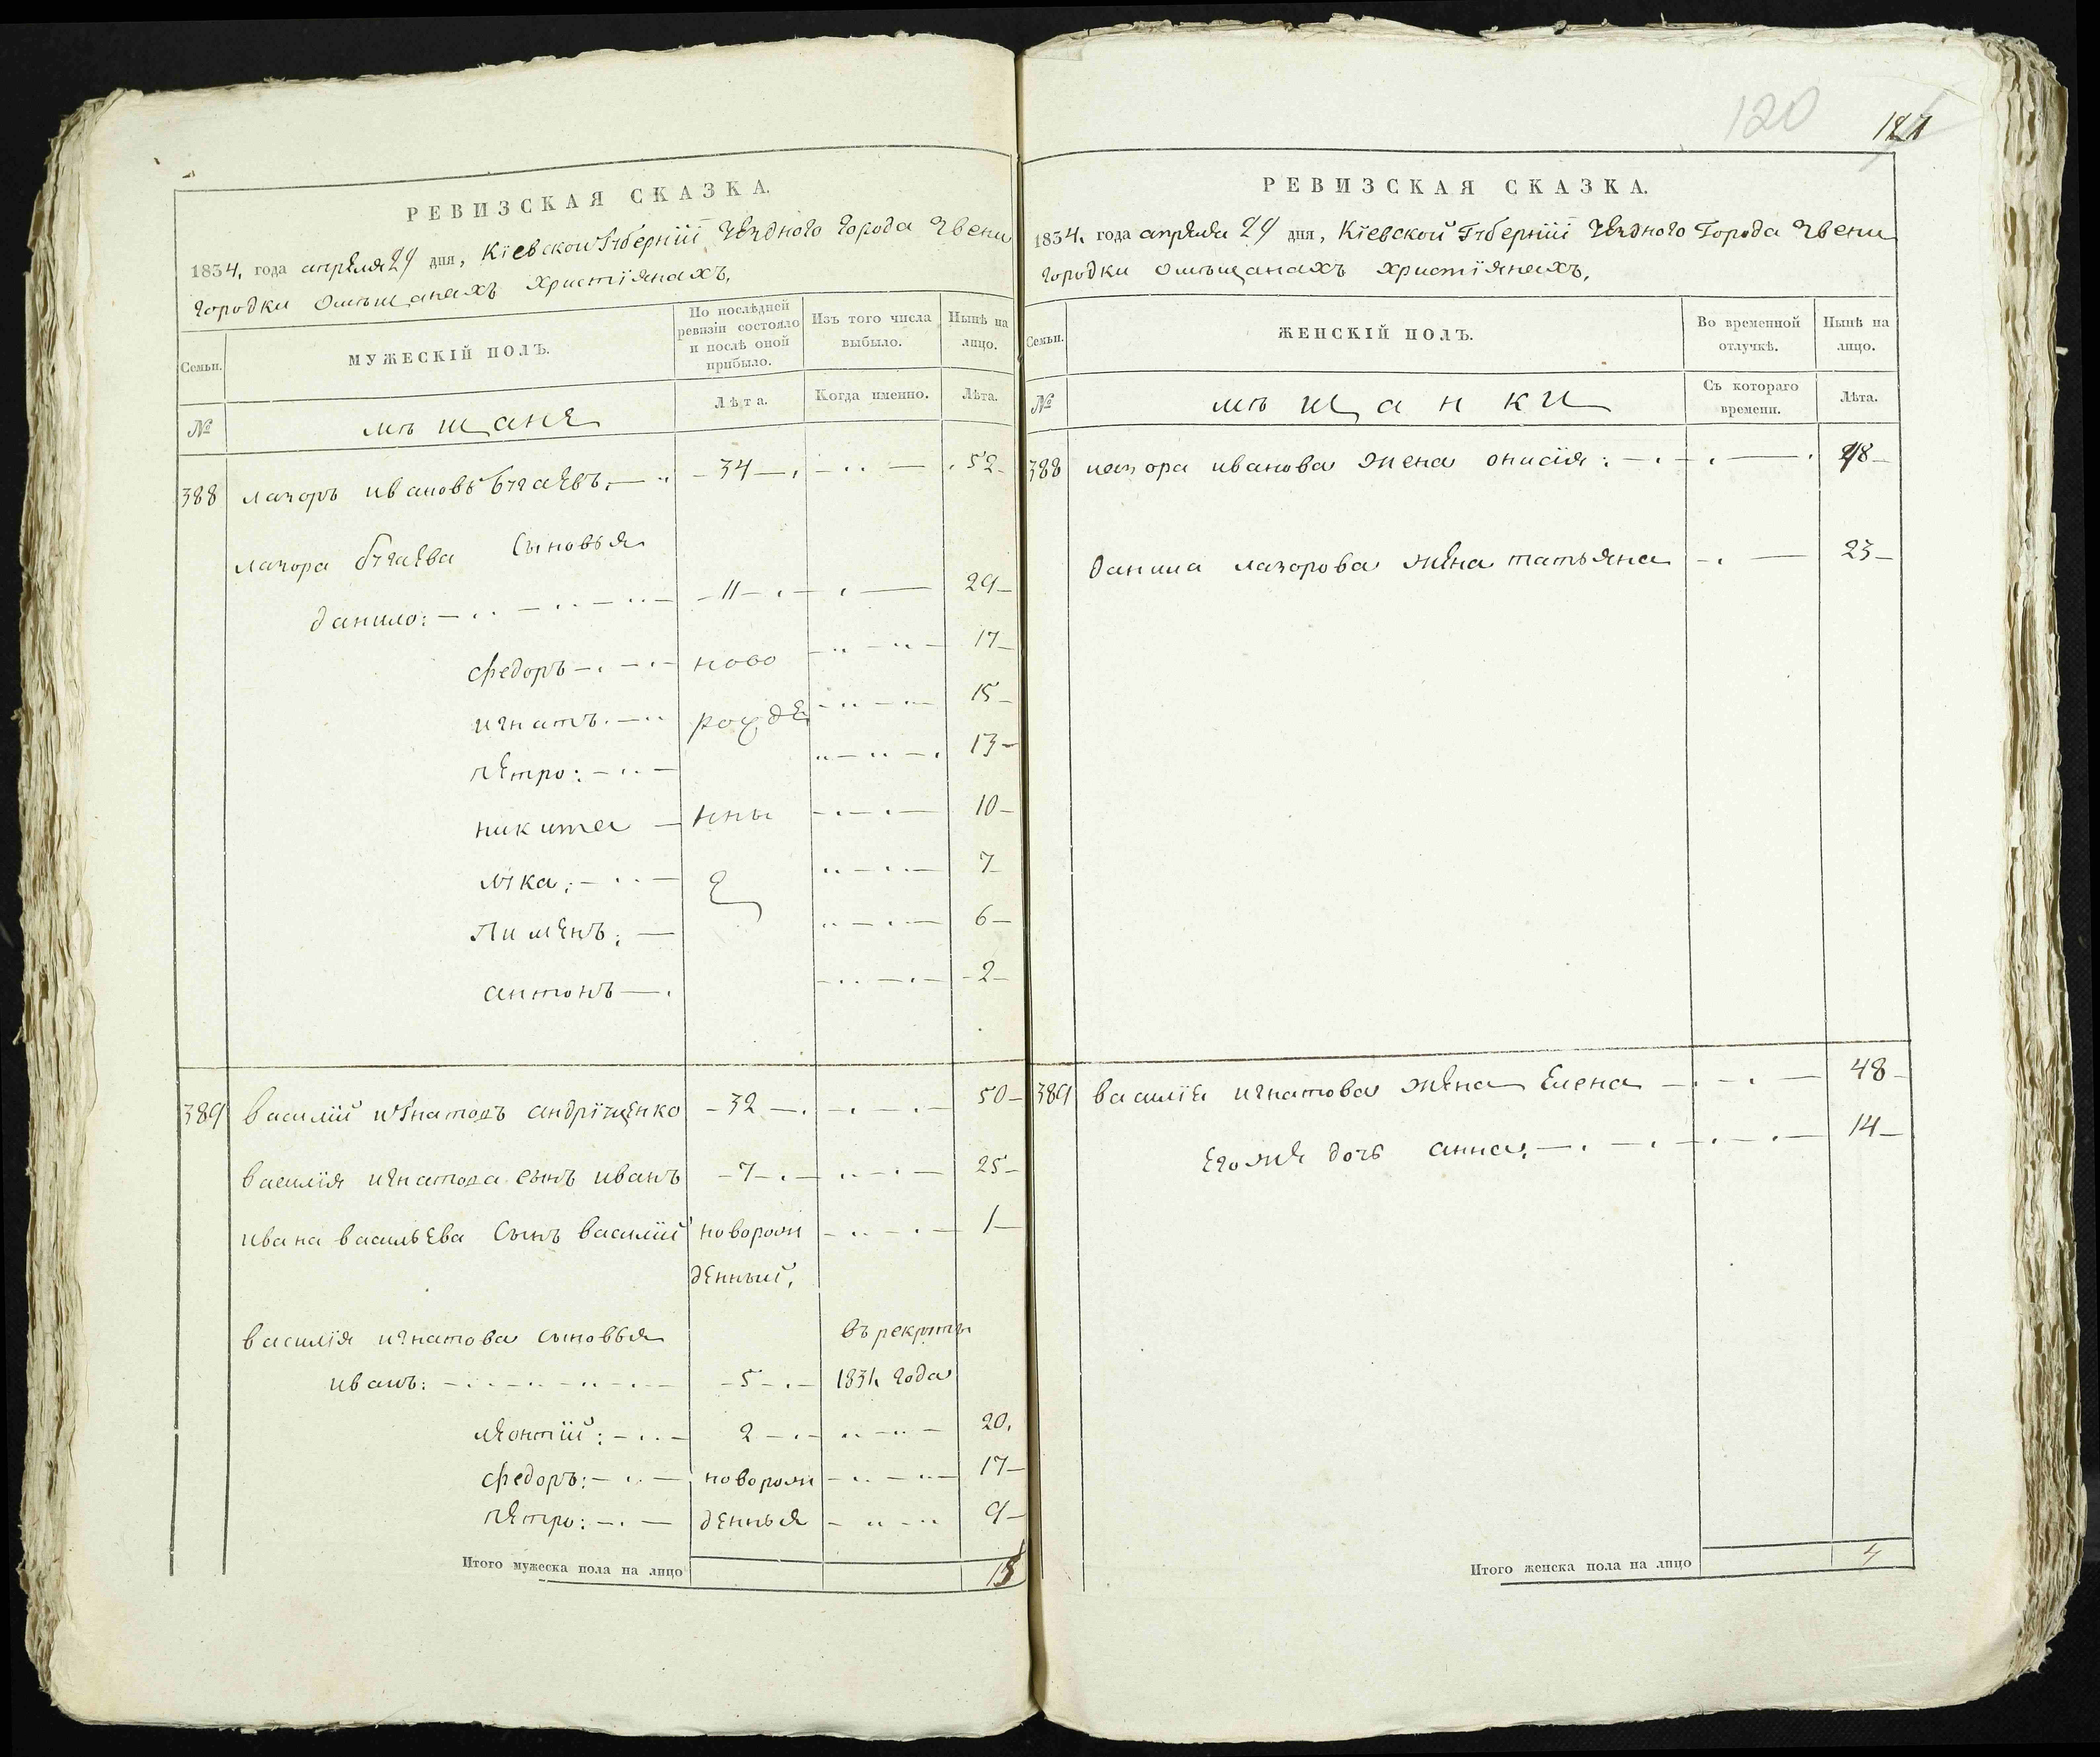 120
121
РЕВИЗСКАЯ СКАЗКА.
1834. года апреля 24 дня, Кіевской Губерніи уезднаго города Звени
городки омѣщанахъ христіянахъ,
Семьи.
МУЖЕСКІЙ ПОЛЪ.
По послѣдней ревизіи состояло и послѣ оной прибыло.
Изъ того числа выбыло.
Нынѣ на лицо.
№
мѣщане
Лѣта.
Когда именно.
Лѣта.
388 лазоръ ивановъ 34 52
лазора сыновья
данило: 11 29
федоръ ново 17
игнатъ рожде 15
петро: 13
никита нны 10
лука: е 7
пименъ: 6
антонъ 2
389 василій игнатовъ андріущенко 32 50
василія игнатова сынъ иванъ 7 25
ивана васильева сынъ василій новорож 1
денный,
василія игнатова сыновья въ рекруты
иванъ: 5 1831, года
леонтій: 2 20,
федоръ: новорож 17
петро: денные 9
Итого мужеска пола на лицо 15
РЕВИЗСКАЯ СКАЗКА.
1834. года апреля 24 дня, Кіевской Губерніи уезднаго Города Звени
городки омѣщанахъ христіянахъ,
Семьи.
ЖЕНСКІЙ ПОЛЪ.
Во временной отлучкѣ.
Нынѣ на лицо.
№
мѣщанки
Съ котораго времени.
Лѣта.
388 лазора иванова жена онисія: 48
данила лазорова жена татьяна 23
389 василія игнатова жена Елена 48
егоже дочь анна, 14
Итого женска пола на лицо 4